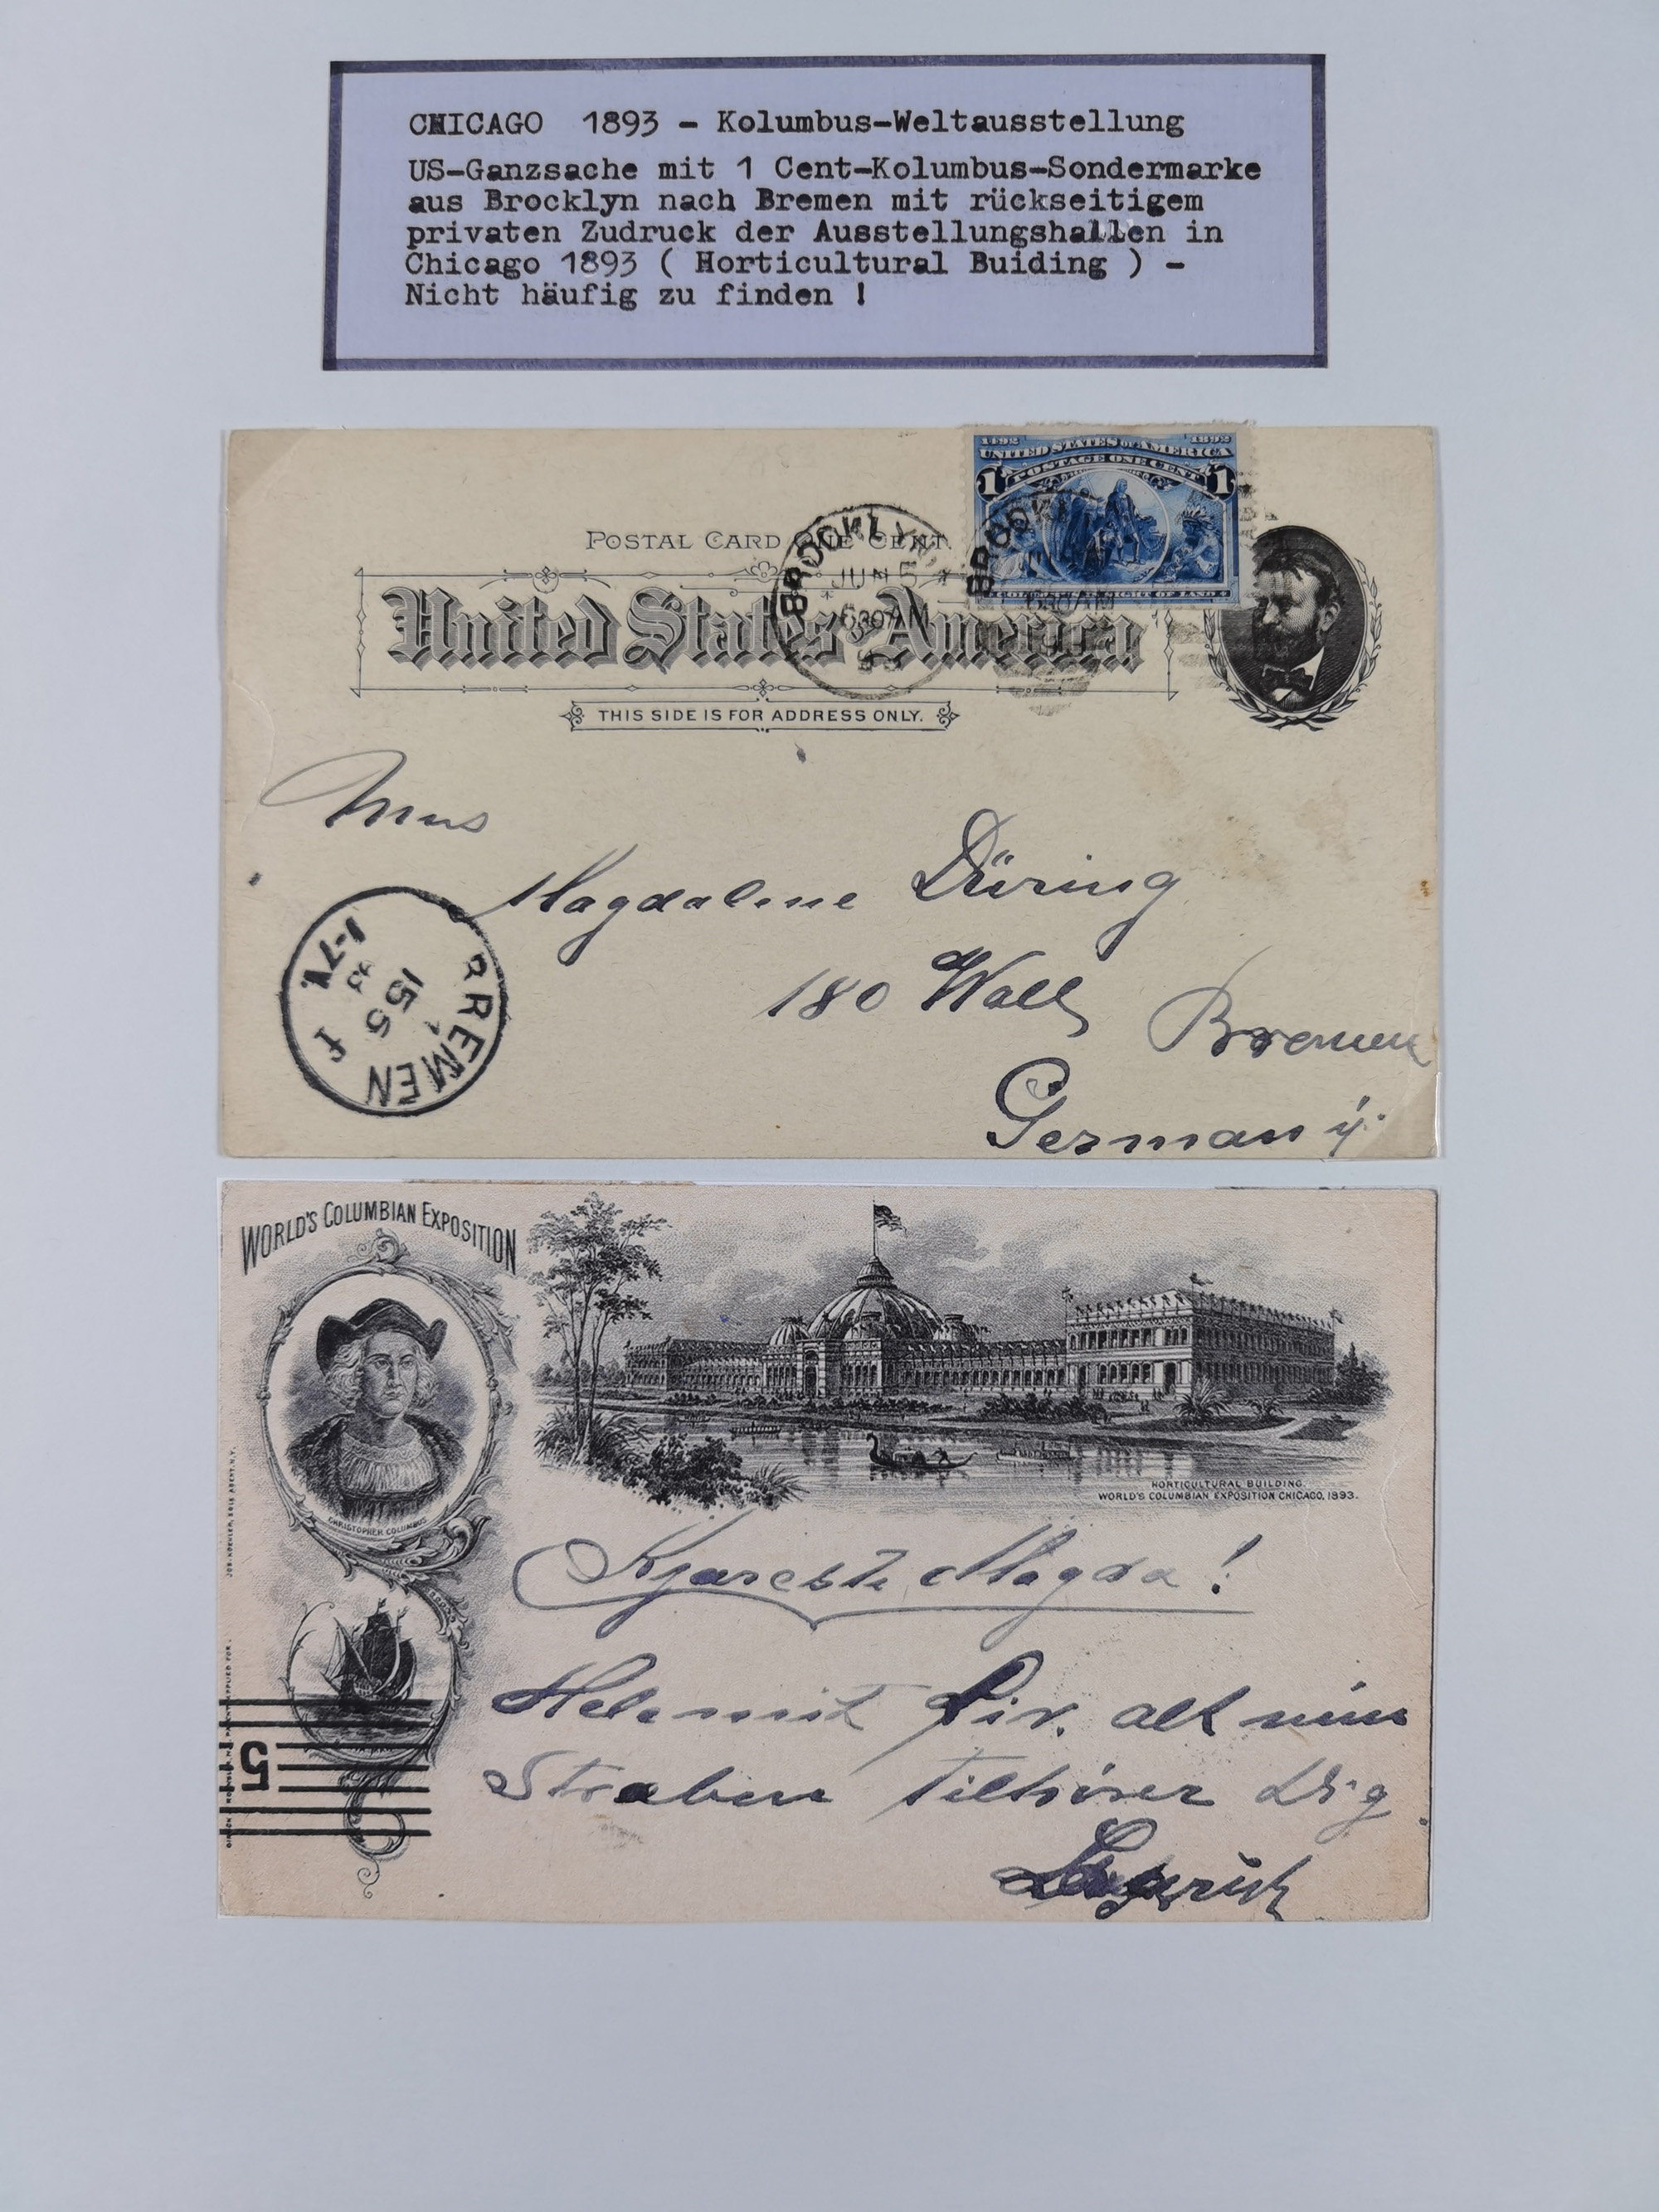 CHICAGO 1893 - Kolumbus-Weltausstellung
US-Ganzsache mit 1 Cent-Kolumbus-Sondermarke
aus Brocklyn nach Bremen mit rückseitigem
privaten Zudruck der Ausstellungshallen in
Chicago 1893 ( Horticultural Buiding ) -
Nicht häufig zu finden !
1492 1892
UNITED STATES OF AMERICA
1 POSTAGE ONE CENT 1
POSTAL CARD ONE CENT.
BROOKLYN
JUN 5
630AM
BROOKLYN
630AM
United States America
THIS SIDE IS FOR ADDRESS ONLY.
Magdalene Düring
180 Wall Bremen
Germany
BREMEN
15 5
WORLD'S COLUMBIAN EXPOSITION
CHRISTOPHER COLUMBUS
HORTICULTURAL BUILDING.
WORLD'S COLUMBIAN EXPOSITION CHICAGO, 1893.
Kjareste Magda!
alt
5